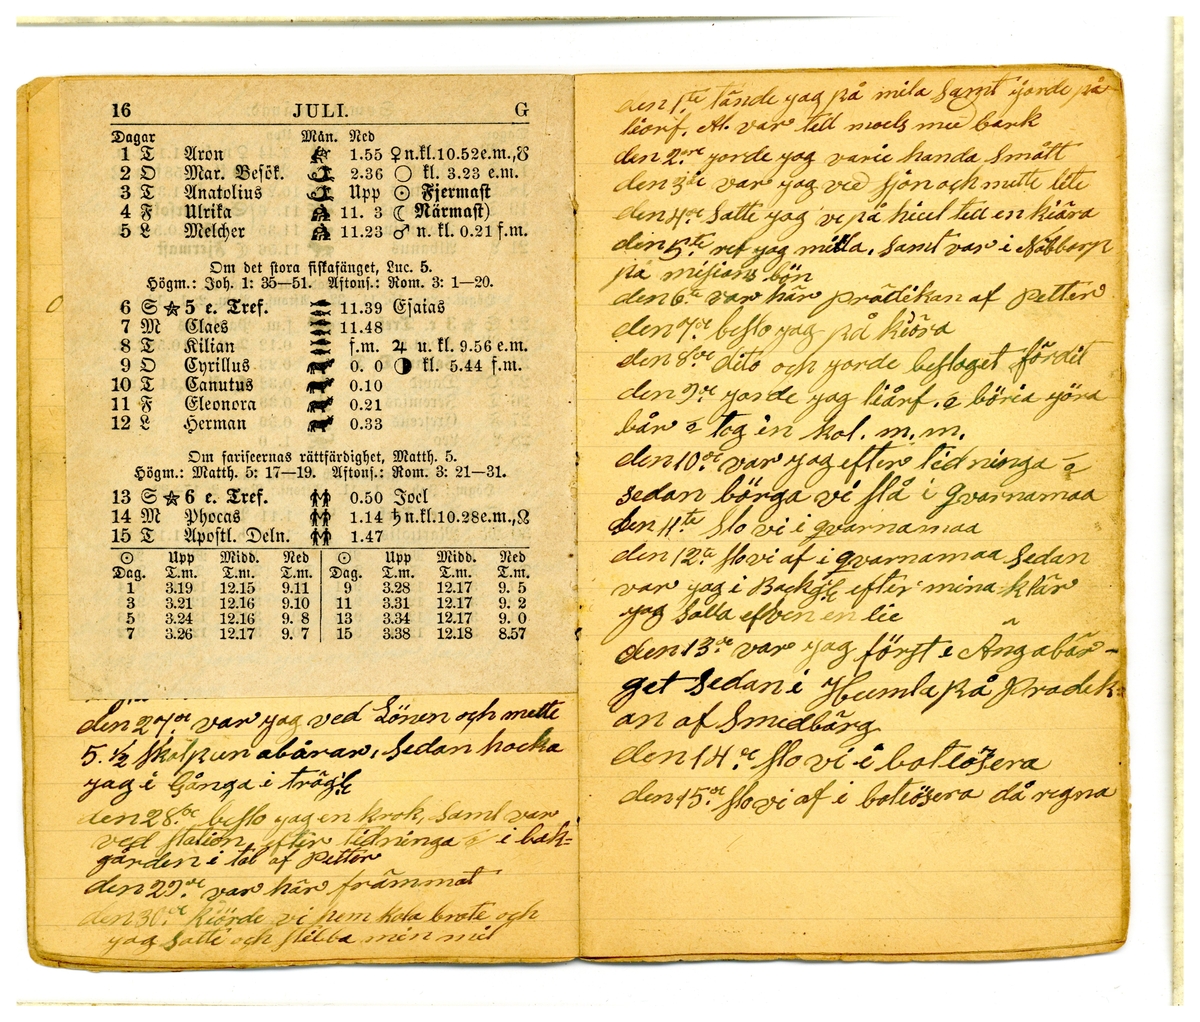 16 JULI. G
Dagar Mån. Ned
1 T Aron 1.55 ♀ n.kl.10.52e.m.,☋
2 O Mar. Besök. 2.36 ○ kl. 3.23 e.m.
3 T Anatolius Upp ☉ Fjermast
4 F Ulrika 11. 3 ☾ Närmast)
5 L Melcher 11.23 ♂ n. kl. 0.21 f.m.
Om det stora fiskafänget, Luc. 5.
Högm.: Joh. 1: 35—51. Aftons.: Rom. 3: 1—20.
6 S ★ 5 e. Tref. 11.39 Esaias
7 M Claes 11.48
8 T Kilian f.m. ♃ n. kl. 9.56 e.m.
9 O Cyrillus 0. 0 ◑ kl. 5.44 f.m.
10 T Canutus 0.10
11 F Eleonora 0.21
12 L Herman 0.33
Om fariseernas rättfärdighet, Matth. 5.
Högm.: Matth. 5: 17—19. Aftons.: Rom. 3: 21—31.
13 S ★ 6 e. Tref. 0.50 Joel
14 M Phocas 1.14 ♄ n.kl.10.28e.m.,☊
15 T Apostl. Deln. 1.47
☉ Upp Midd. Ned ☉ Upp Midd. Ned
Dag. T.m. T.m. T.m. Dag. T.m. T.m. T.m.
1 3.19 12.15 9.11 9 3.28 12.17 9. 5
3 3.21 12.16 9.10 11 3.31 12.17 9. 2
5 3.24 12.16 9. 8 13 3.34 12.17 9. 0
7 3.26 12.17 9. 7 15 3.38 12.18 8.57
den 27de var jag ved Lönen och mette
5. ½ skolpun abårar, sedan hocka
jag i Gånga i
den 28de beslo jag en krok, samt var
ved station efter tidninga i bak=
gården i tal af Petter
den 29de var här främmat
den 30de kiörde vi hem kola brote och
jag satte och stibba min mil
den 1te tände jag på mila samt jorde på
liorf. Al. var till moels med bark
den 2dre jorde jag varie handa smått
den 3de var jag ved sjön och mette lite
den 4de satte jag vi på hiul till en kiära
den 5te ref jag milla, samt var i Näbbarp
på misions bön
den 6te var här prädikan af Petter
den 7de beslo jag på kiöra
den 8de dito och jorde beslaget färdit
den 9de jorde jag liårf. å böria göra
bår å tog in kol. m. m.
den 10de var jag efter tidninga å
sedan börga vi slå i qvarnamaa
den 11te slo vi i qvarnamaa
den 12te slo vi af i qvarnamaa sedan
var jag i efter mina klär
jag en lie
den 13de var jag först i Ängabär-
get sedan i Humla på pradik=
an af Smedbärg
den 14de slo vi i botiösera
den 15de slo vi af i botiösera då regna